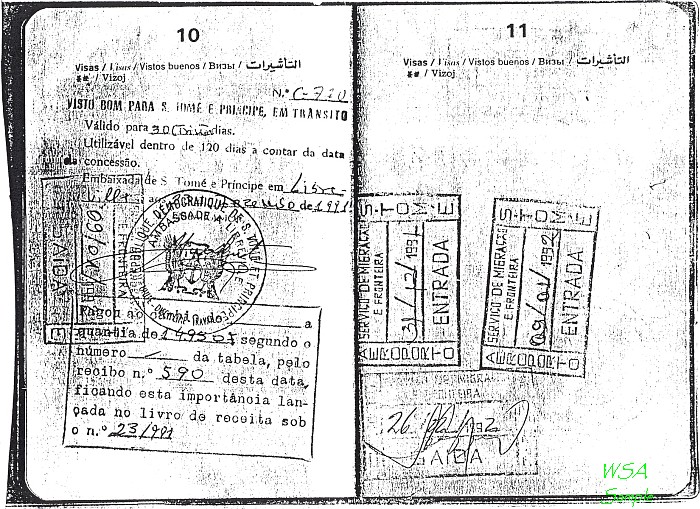 10
Visas / Visas / Vistos buenos / Визы / التأشيرات
** / Vizoj
N.º C-720
VISTO BOM PARA S. TOMÉ E PRÍNCIPE, EM TRÂNSITO
Válido para 30 (Trinta) dias.
Utilizável dentro de 120 dias a contar da data
da concessão.
Embaixada de S. Tomé e Príncipe em Libre-
ville de 1991
AMBASSADE A LIBREVILLE
SAIDA
E FRONTEIRA
Pagou ao a
quantia de segundo o
número da tabela, pelo
recibo n.º 590 desta data,
ficando esta importância lan-
çada no livro de receita sob
o n.º 23/991
11
Visas / Visas / Vistos buenos / Визы / التأشيرات
** / Vizoj
S. TOMÉ
SERVIÇO DE MIGRAÇÃO
E FRONTEIRA
31/12/1991
ENTRADA
AEROPORTO
S. TOMÉ
SERVIÇO DE MIGRAÇÃO
E FRONTEIRA
09/01/1992
ENTRADA
AEROPORTO
E FRONTEIRA
26/02/1992
SAIDA
WSA
Sample